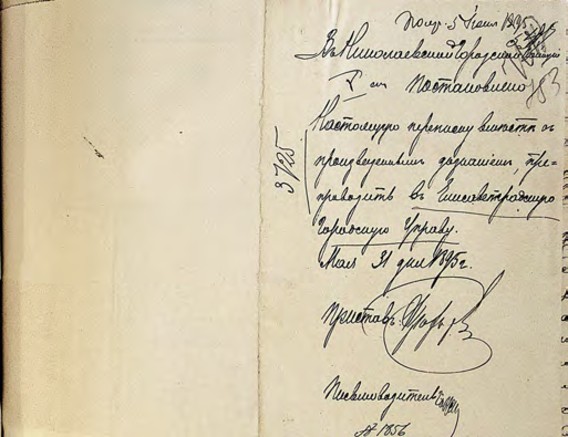 Полу. 5 Июня 1895
Въ Николаевскій Городской
Постановлено
183
Настоящую переписку вмѣстѣ съ
произведеннымъ дознаніемъ, пре-
проводить въ Елисаветградскую
Городскую Управу.
Мая 31 дня 1895 г.
3725
Приставъ
Письмоводитель
№ 1856